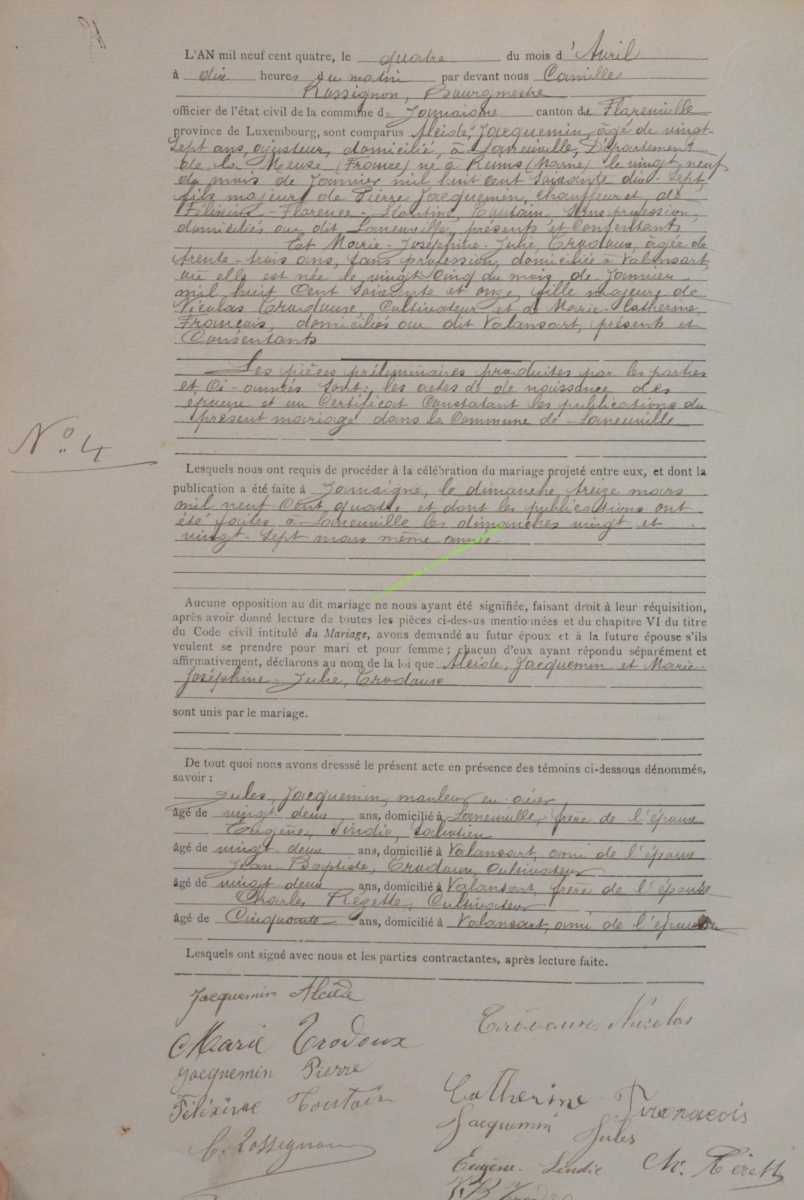 L'AN mil neuf cent quatre, le quatre du mois d'Avril
à dix heures du matin par devant nous Camille
Rossignon, Bourgmestre
officier de l'état civil de la commune de Jamoigne canton de Florenville
province de Luxembourg, sont comparus Alcide, Jacquemin, âgé de vingt-
sept ans, ajusteur, domicilié, à Laneuville, Département
de la Meuse (France) né à Reims (Marne) le vingt neuf
du mois de Janvier mil huit cent soixante dix sept,
fils majeur de Pierre Jacquemin, chauffeur et de
Florence Toutain, sans profession,
domiciliés au dit Laneuville, présents et consentants
Et Marie-Joséphine-Julie, Trodoux, âgée de
trente-trois ans, sans profession, domiciliée à Valansart,
où elle est née le vingt cinq du mois de Janvier
mil huit cent soixante et onze, fille majeure de
Nicolas Trodoux, Cultivateur et de Marie-Catherine,
François, domiciliés au dit Valansart, présents et
Consentants
Les pièces préliminaires produites par les parties
et Ci-annexées sont: les actes de de naissance des
époux et un Certificat Constatant les publications du
présent mariage dans la Commune de Laneuville
N° 4
Lesquels nous ont requis de procéder à la célébration du mariage projeté entre eux, et dont la
publication a été faite à Jamoigne, le dimanche treize mars
mil neuf Cent quatre, et dont les publications ont
été faites à Laneuville les dimanches vingt et
vingt-sept mars même année
Aucune opposition au dit mariage ne nous ayant été signifiée, faisant droit à leur réquisition,
après avoir donné lecture de toutes les pièces ci-dessus mentionnées et du chapitre VI du titre
du Code civil intitulé du Mariage, avons demandé au futur époux et à la future épouse s'ils
veulent se prendre pour mari et pour femme; chacun d'eux ayant répondu séparément et
affirmativement, déclarons au nom de la loi que Alcide, Jacquemin et Marie-
Joséphine-Julie, Trodoux
sont unis par le mariage.
De tout quoi nous avons dresssé le présent acte en présence des témoins ci-dessous dénommés,
savoir:
Jules, Jacquemin, mouleur en acier
âgé de vingt deux ans, domicilié à Laneuville, frère de l'époux
Eugène, Sindic,
âgé de vingt deux ans, domicilié à Valansart, ami de l'époux
Jean Baptiste, Trodoux, Cultivateur
âgé de vingt deux ans, domicilié à Valansart, frère de l'épouse
Charles Cultivateur
âgé de Cinquante ans, domicilié à Valansart, ami de l'épouse
Lesquels ont signé avec nous et les parties contractantes, après lecture faite.
Jacquemin Alcide
Trodoux Nicolas
Marie Trodoux
Jacquemin Pierre
Catherine François
Toutain
Jacquemin Jules
C. Rossignon
Eugène Sindic Ch.